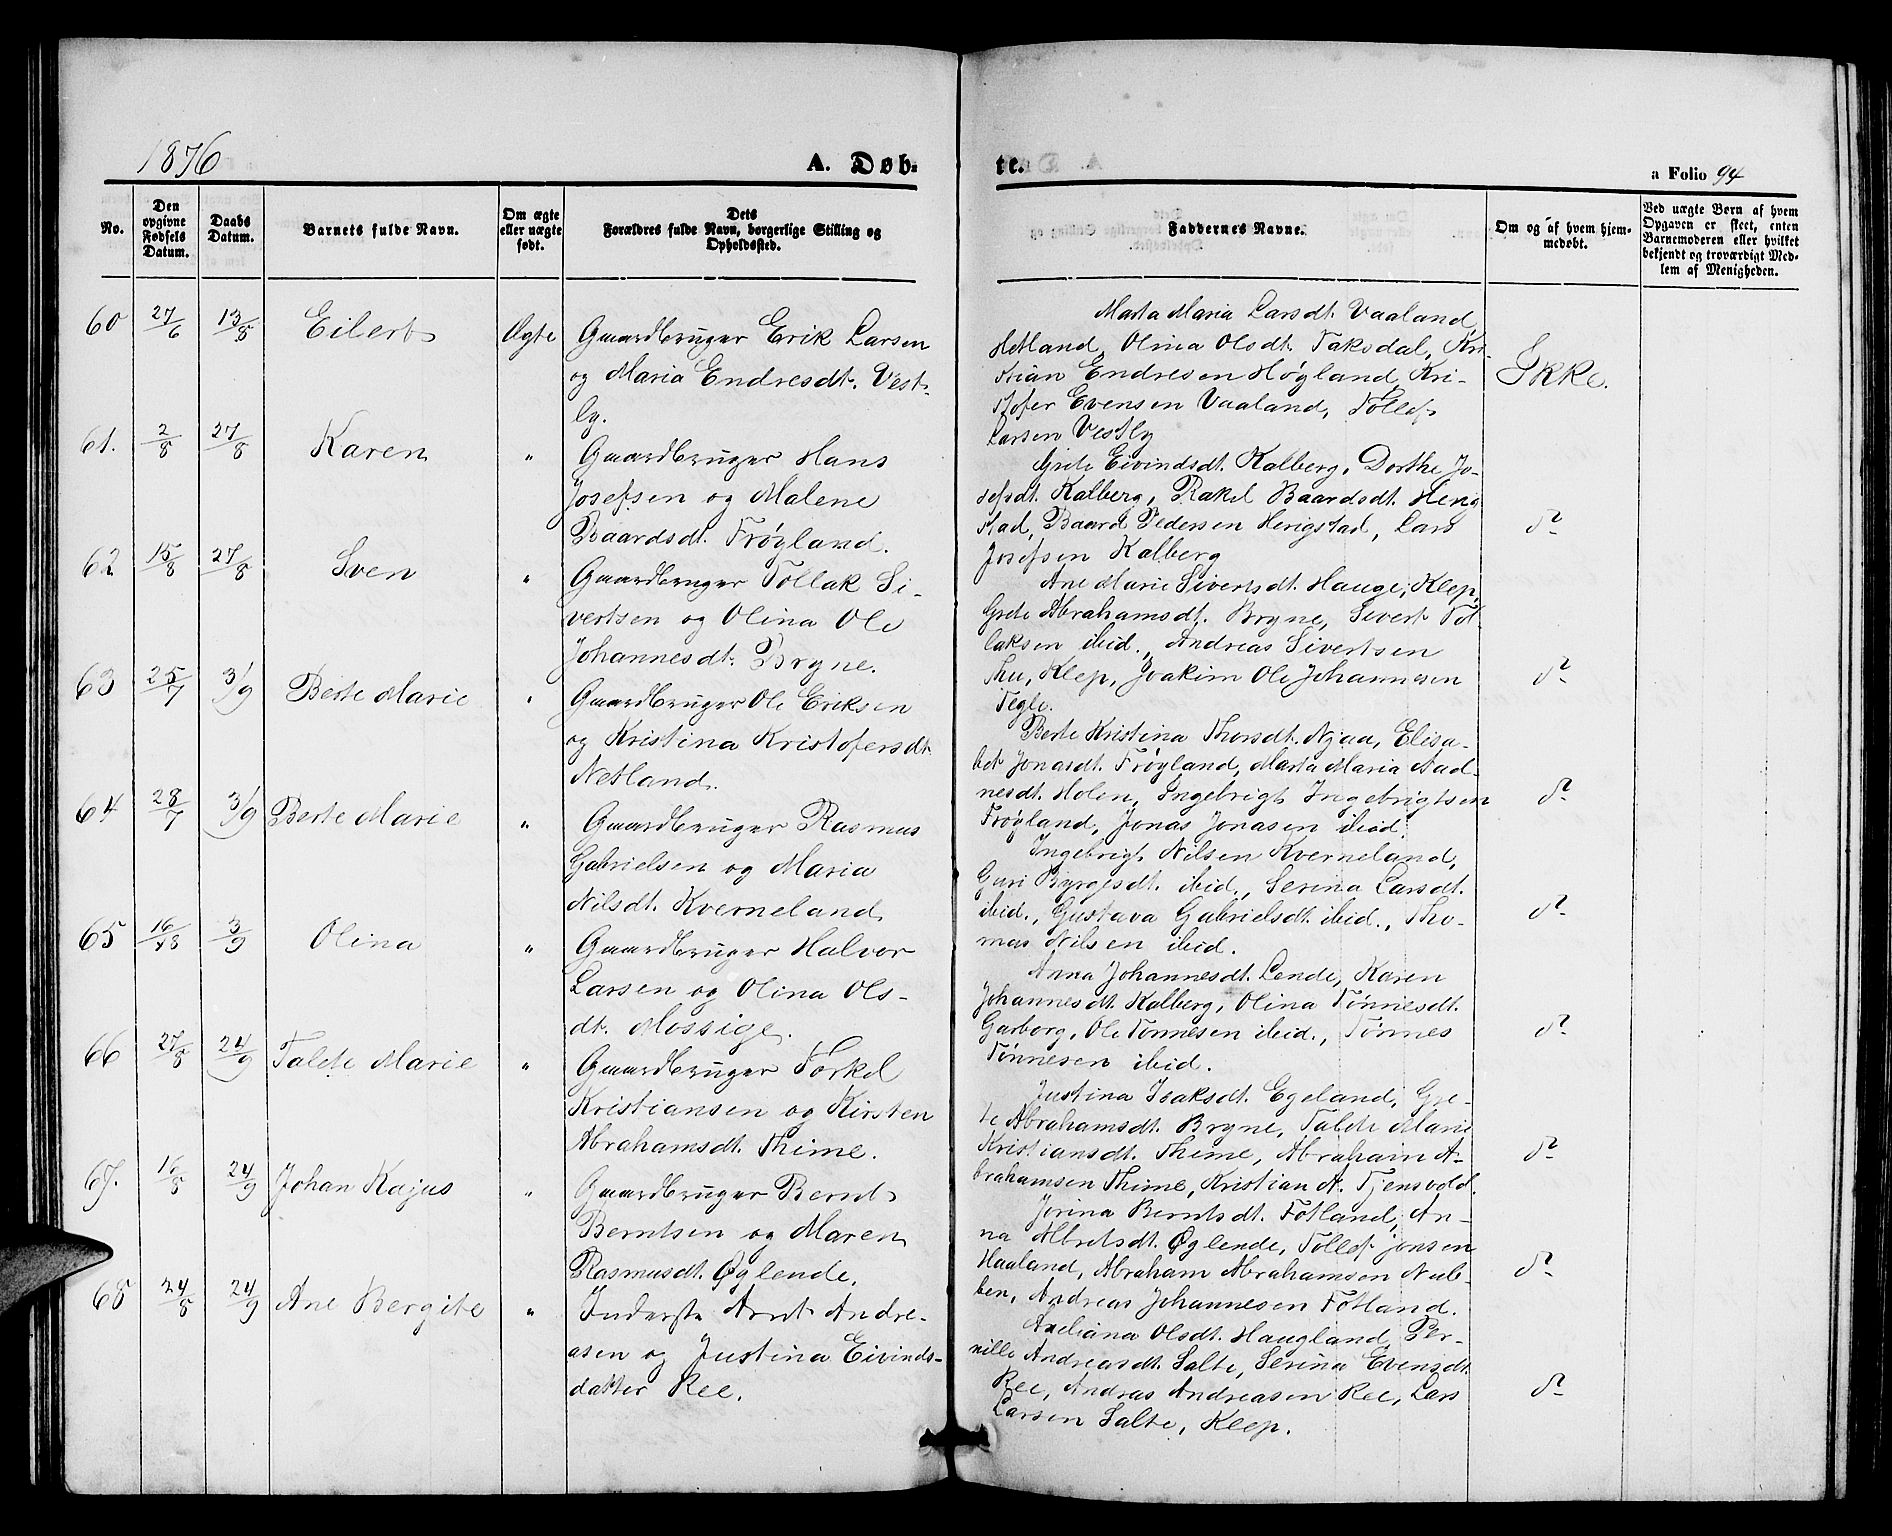 1876
A. Døb-
te.
a Folio 94
No.
Den
opgivne
Fødsels
Datum.
Daabs
Datum.
Barnets fulde Navn.
Om ægte
eller uægte
født.
Dets
Forældres fulde Navn, borgerlige Stilling og
Opholdssted.
Faddernes Navne.
Om og af hvem hjem-
medøbt.
Ved uægte Børn af hvem
Opgaven er skeet, enten
Barnemoderen eller hvilket
bekjendt og troværdigt Med-
lem af Menigheden.
60 27/6 13/8 Eilert Ægte Gaardbruger Erik Larsen
og Maria Endresdt. Vest-
ly.
Marta Maria Larsdt. Vaaland
Hetland, Olina Olsdt. Taksdal, Kri-
stian Endresen Høgland, Kri-
stofer Evensen Vaaland, Tollef
Larsen Vestly
Ikke.
61. 2/8 27/8 Karen " Gaardbruger Hans
Josefsen og Malene
Baardsdt. Frøyland.
Grete Eivindsdt. Kalberg, Dorthe Jo-
sefsdt. Kalberg, Rakel Baardsdt. Herig
stad, Baard Pedersen Herigstad, Lars
Josefsen Kalberg
do
62 15/8 27/8 Sven " Gaardbruger Tollak Si-
vertsen og Olina Ole
Johannesdt. Bryne.
Ane Marie Sivertsdt. Hauge, Klep,
Grete Abrahamsdt. Bryne, Sivert Tol
laksen ibid., Andreas Sivertsen
Thu, Klep, Joakim Ole Johannesen
Tegle.
do
63 25/7 3/9 Berte Marie " Gaardbruger Ole Eriksen
og Kristina Kristofersdt.
Netland.
Berte Kristina Thorsdt. Njaa, Elisa-
bet Jonasdt. Frøyland, Marta Maria Aad-
nesdt. Holen, Ingebrigt Ingebrigtsen
Frøyland, Jonas Jonasen ibid.
do
64 28/7 3/9 Berte Marie " Gaardbruger Rasmus
Gabrielsen og Maria
Nilsdt. Kverneland
Ingebrigt Nilsen Kverneland,
Guri Byrgesdt. ibid., Serina Larsdt.
ibid., Gustava Gabrielsdt. ibid., Tho-
mas Nilsen ibid.
do
65 16/8 3/9 Olina " Gaardbruger Halvor
Larsen og Olina Ols-
dt. Mossige.
Anna Johannesdt. Lende, Karen
Johannesdt. Kalberg, Olina Tønnesdt.
Garborg, Ole Tønnesen ibid., Tønnes
Tønnesen ibid.
do
66 27/8 24/9 Talete Marie " Gaardbruger Torkel
Kristiansen og Kirsten
Abrahamsdt. Thime.
Justina Isaksdt. Egeland, Gre-
te Abrahamsdt. Bryne, Talete Marie
Kristiansdt. Thime, Abraham A-
brahamsen Thime, Kristian A. Tjensvold.
do
67. 16/8 24/9 Johan Kajus " Gaardbruger Bernt
Berntsen og Maren
Rasmusdt. Øglende.
Jorina Berntsdt. Fotland, An-
na Albretsdt. Øglende, Tollef jonsen
Haaland, Abraham Abrahamsen Nub-
ben, Andreas Johannesen Fotland.
do
68 24/8 24/9 Ane Bergite " Inderste Arnt Andre-
asen og Justina Eivinds-
datter Ree.
Axeliana Olsdt. Haugland, Per-
nille Andreasdt. Salte, Serina Evensdt.
Ree, Andras Andreasen Ree, Lars
Larsen Salte, Klep.
do